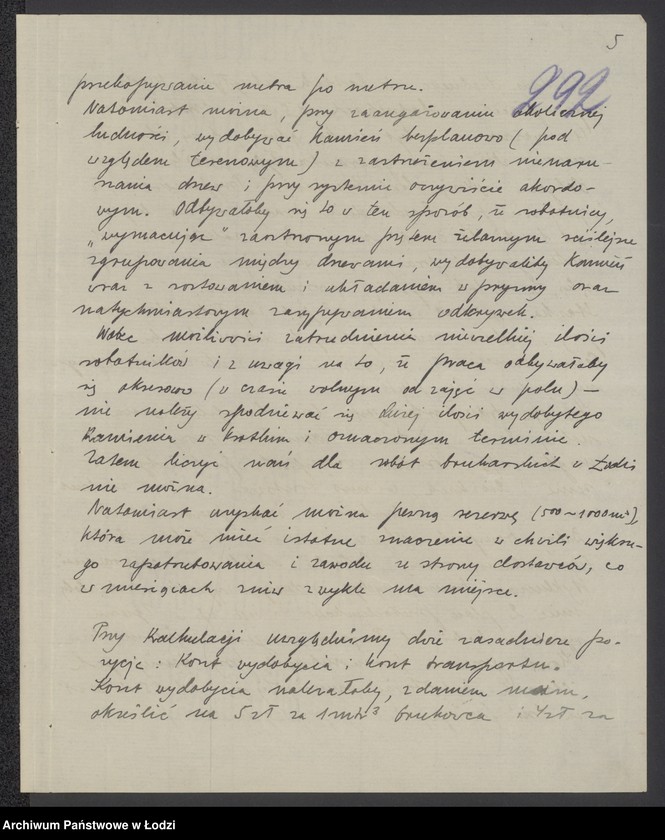 5
292
przekopywanie metra po metrze.
Natomiast można, przy zaangażowaniu okolicznej
ludności, wydobywać kamień bezplanowo (pod
względem terenowym) z zastrzeżeniem nienaru-
szania drzew i przy systemie oczywiście akordo-
wym. Odbywałoby się to w ten sposób, że robotnicy,
„wymacując" zaostrzonym prętem żelaznym ściślejsze
zgrupowania między drzewami, wydobywaliby kamień
wraz z sortowaniem i układaniem w pryzmy oraz
natychmiastowym zasypywaniem odkrywek.
Wobec możliwości zatrudnienia niewielkiej ilości
robotników i z uwagi na to, że praca odbywałaby
się okresowo (w czasie wolnym od zajęć w polu) —
nie należy spodziewać się dużej ilości wydobytego
kamienia w krótkim i oznaczonym terminie.
Zatem liczyć nań dla robót brukarskich w Łodzi
nie można.
Natomiast uzyskać można pewną rezerwę (500~1000 m³),
która może mieć istotne znaczenie w chwili większe-
go zapotrzebowania i zawodu ze strony dostawców, co
w miesiącach żniw zwykle ma miejsce.
Przy kalkulacji uwzględniśmy dwie zasadnicze po-
zycje: koszt wydobycia i koszt transportu.
Koszt wydobycia należałoby, zdaniem moim,
określić na 5 zł za 1 mtr³ brukowca i 4 zł za
Archiwum Państwowe w Łodzi